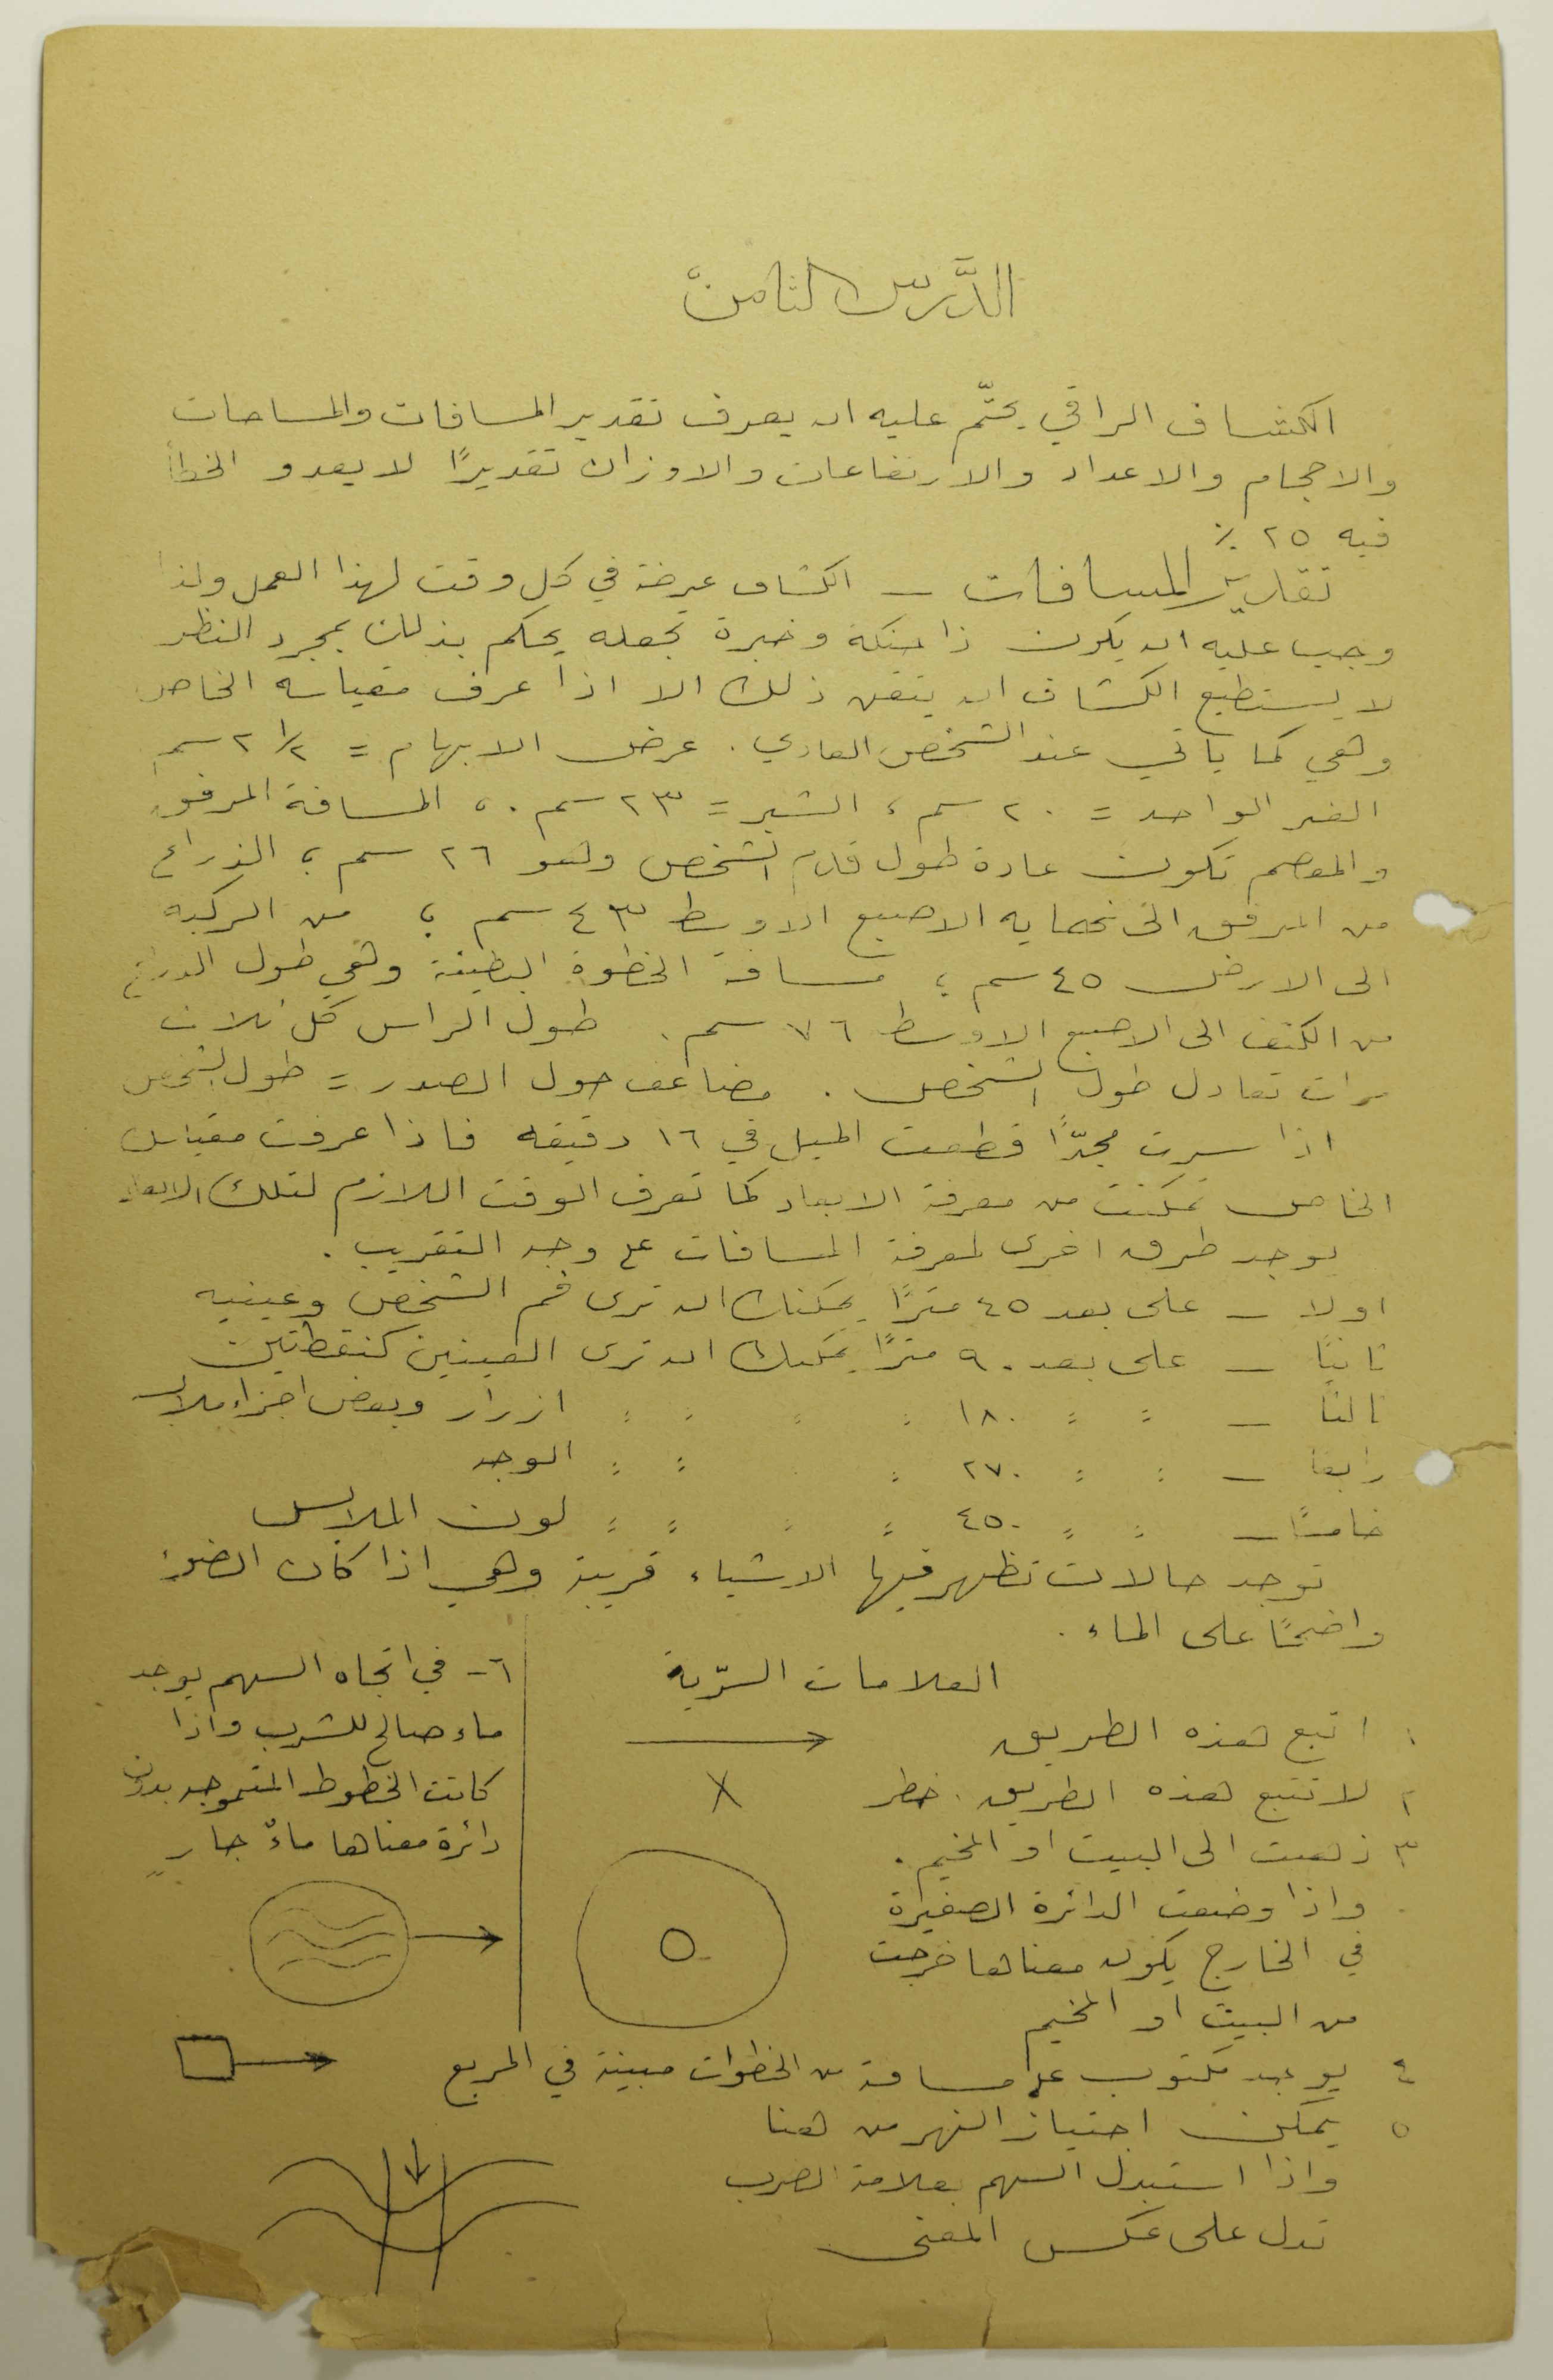 الدَّرس الثامن
الكشاف الراقي يحتّم عليه ان يعرف تقدير المسافات والمساحات
والاحجام والاعداد والارتفاعات والاوزان تقديرًا لا يعدو الخطأ
فيه ٢٥ ٪
تقدير المسافات — الكشاف عرضة في كل وقت لهذا العمل ولذا
وجب عليه ان يكون ذا حنكة وخبرة تجعله يحكم بذلك بمجرد النظر
لا يستطيع الكشاف ان يتقن ذلك الا اذا عرف مقياسه الخاص
وهي كما ياتي عند الشخص العادي . عرض الابهام = ٢ ١/٢ سم
الفتر الواحد = ٢٠ سم ، الشبر = ٢٣ سم . ، المسافة المرفق
والمعصم تكون عادة طول قدم الشخص وهو ٢٦ سم ؛ الذراع
من المرفق الى نهاية الاصبع الاوسط ٤٣ سم ؛ من الركبه
الى الارض ٤٥ سم ؛ مسافة الخطوة البطيئة وهي طول الذراع
من الكتف الى الاصبع الاوسط ٧٦ سم . طول الراس كل ثلاث
مرات تعادل طول الشخص . مضاعف حول الصدر = طول الشخص
اذا سرت مجدًّا قطعت الميل في ١٦ دقيقه فاذا عرفت مقياسك
الخاص تمكنت من معرفة الابعاد كما تعرف الوقت اللازم لتلك الابعاد
يوجد طرق اخرى لمعرفة المسافات على وجه التقريب .
اولا — على بعد ٤٥ مترًا يمكنك ان ترى فم الشخص وعينيه
ثانيًا — على بعد ٩٠ مترًا يمكنك ان ترى العينين كنقطتين
ثالثا — : : ١٨٠ : : : : ازرار وبعض اجزاء ملابس
رابعا — : : ٢٧٠ : : : : الوجه
خامسًا — : : ٤٥٠ : : : : لون الملابس
توجد حالات تظهر فيها الاشياء قريبة وهي اذا كان الضوء
واضحًا على الماء .
العلامات السّرّية
١ اتبع هذه الطريق
٢ لا تتبع هذه الطريق . خطر
٣ ذهبت الى البيت او المخيم .
واذا وضعت الدائرة الصغيرة
في الخارج يكون معناها خرجت
من البيت او المخيم
٤ يوجد مكتوب على مسافة من الخطوات مبينة في المربع
٥ يمكن اجتياز النهر من هنا
واذا استبدل السهم بعلامة الضرب
تدل على عكس المعنى
٦- في اتجاه السهم يوجد
ماء صالح للشرب واذا
كانت الخطوط المتموجه بدون
دائرة معناها ماءٌ جارٍ